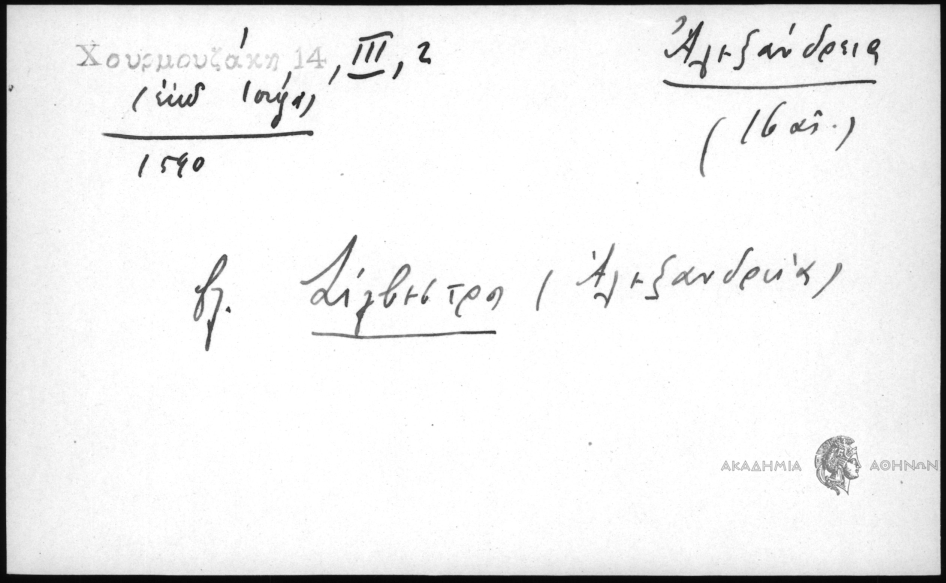 Χουρμουζάκη 14, III, 2
1590
Ἀλεξάνδρεια
(16 αἰ.)
βλ. Σίλβεστρος (Ἀλεξανδρείας)
ΑΚΑΔΗΜΙΑ ΑΘΗΝΩΝ